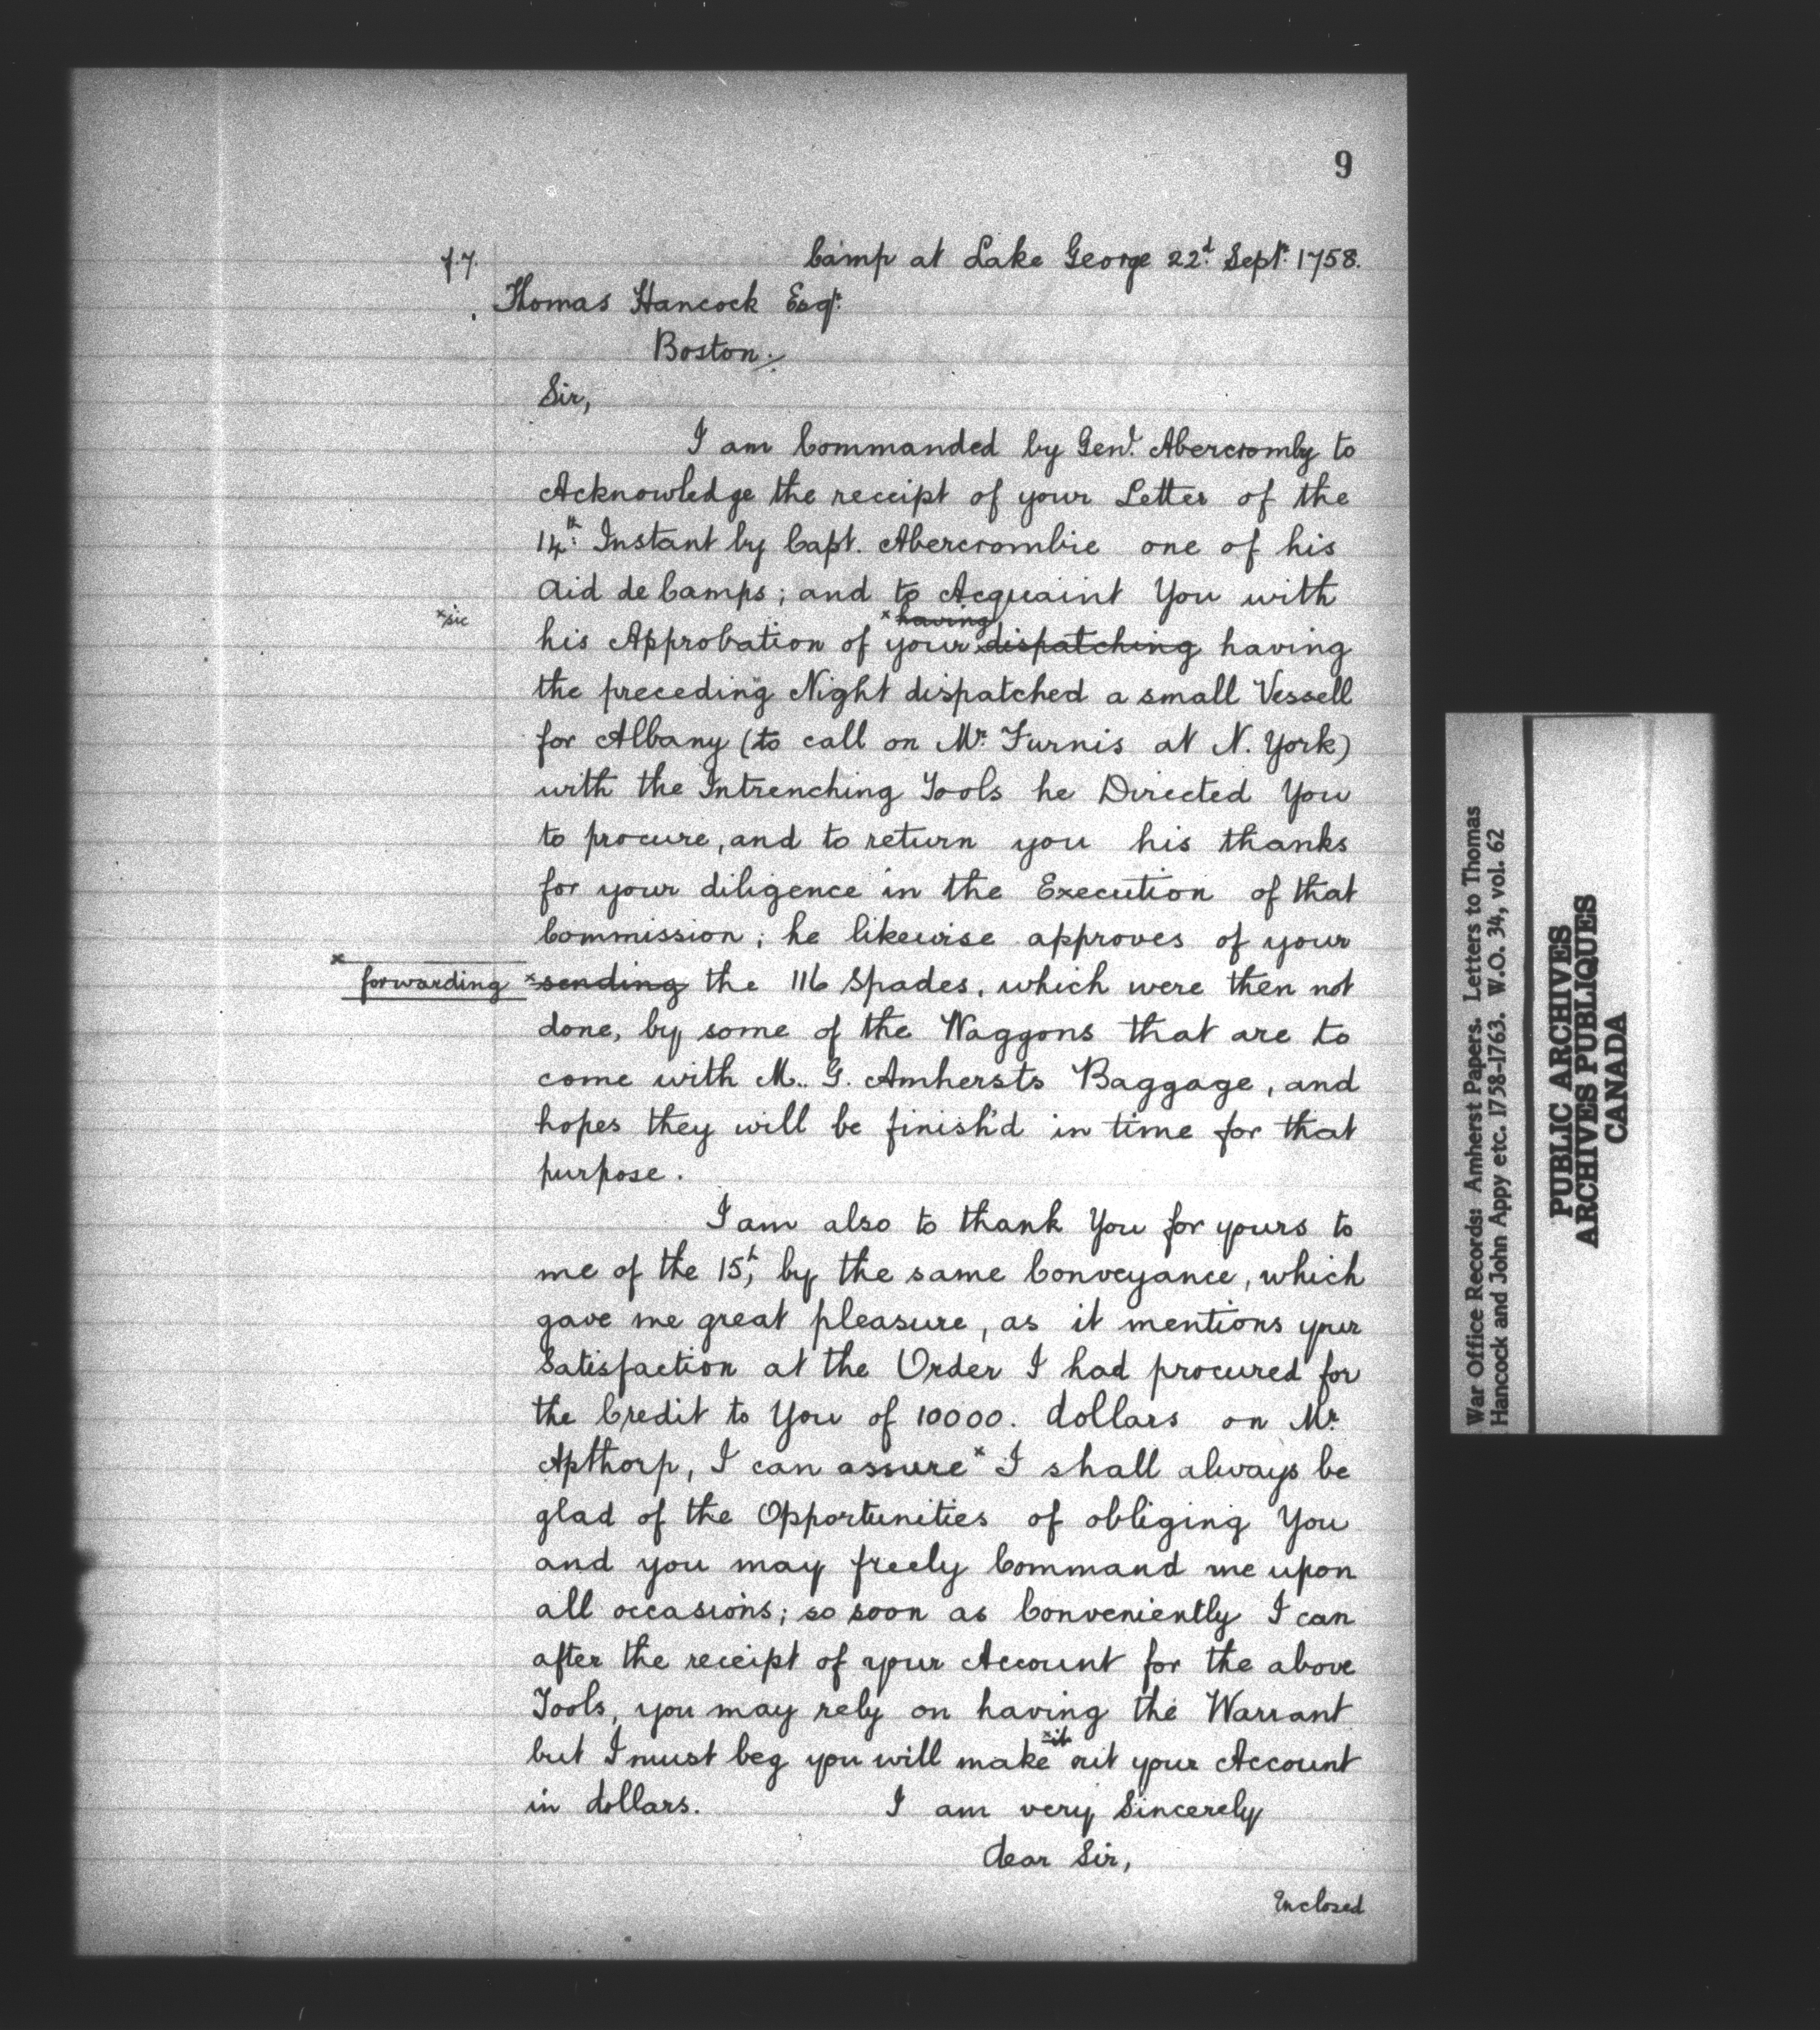 9
f.7.
Camp at Lake George 22d. Septr. 1758.
Thomas Hancock Esqr.
Boston.
Sir,
I am Commanded by Genl. Abercromby to
Acknowledge the receipt of your Letter of the
14th. Instant by Capt. Abercrombie one of his
Aid de Camps; and to Acquaint You with
*sic
*having
his Approbation of your dispatching having
the preceding Night dispatched a small Vessell
for Albany (to call on Mr. Furnis at N. York)
with the Intrenching Tools he Directed You
to procure, and to return you his thanks
for your diligence in the Execution of that
Commission; he likewise approves of your
* forwarding *sending the 116 Spades, which were then not
done, by some of the Waggons that are to
come with M. G. Amhersts Baggage, and
hopes they will be finish'd in time for that
purpose.
I am also to thank You for yours to
me of the 15th, by the same Conveyance, which
gave me great pleasure, as it mentions your
Satisfaction at the Order I had procured for
the Credit to You of 10000. dollars on Mr.
Apthorp, I can assure* I shall always be
glad of the Opportunities of obliging You
and you may freely Command me upon
all occasions; so soon as Conveniently I can
after the receipt of your Account for the above
Tools, you may rely on having the Warrant
*it
but I must beg you will make out your Account
in dollars. I am very Sincerely
dear Sir,
Enclosed
War Office Records: Amherst Papers. Letters to Thomas
Hancock and John Appy etc. 1758-1763. W.O. 34, vol. 62
PUBLIC ARCHIVES
ARCHIVES PUBLIQUES
CANADA